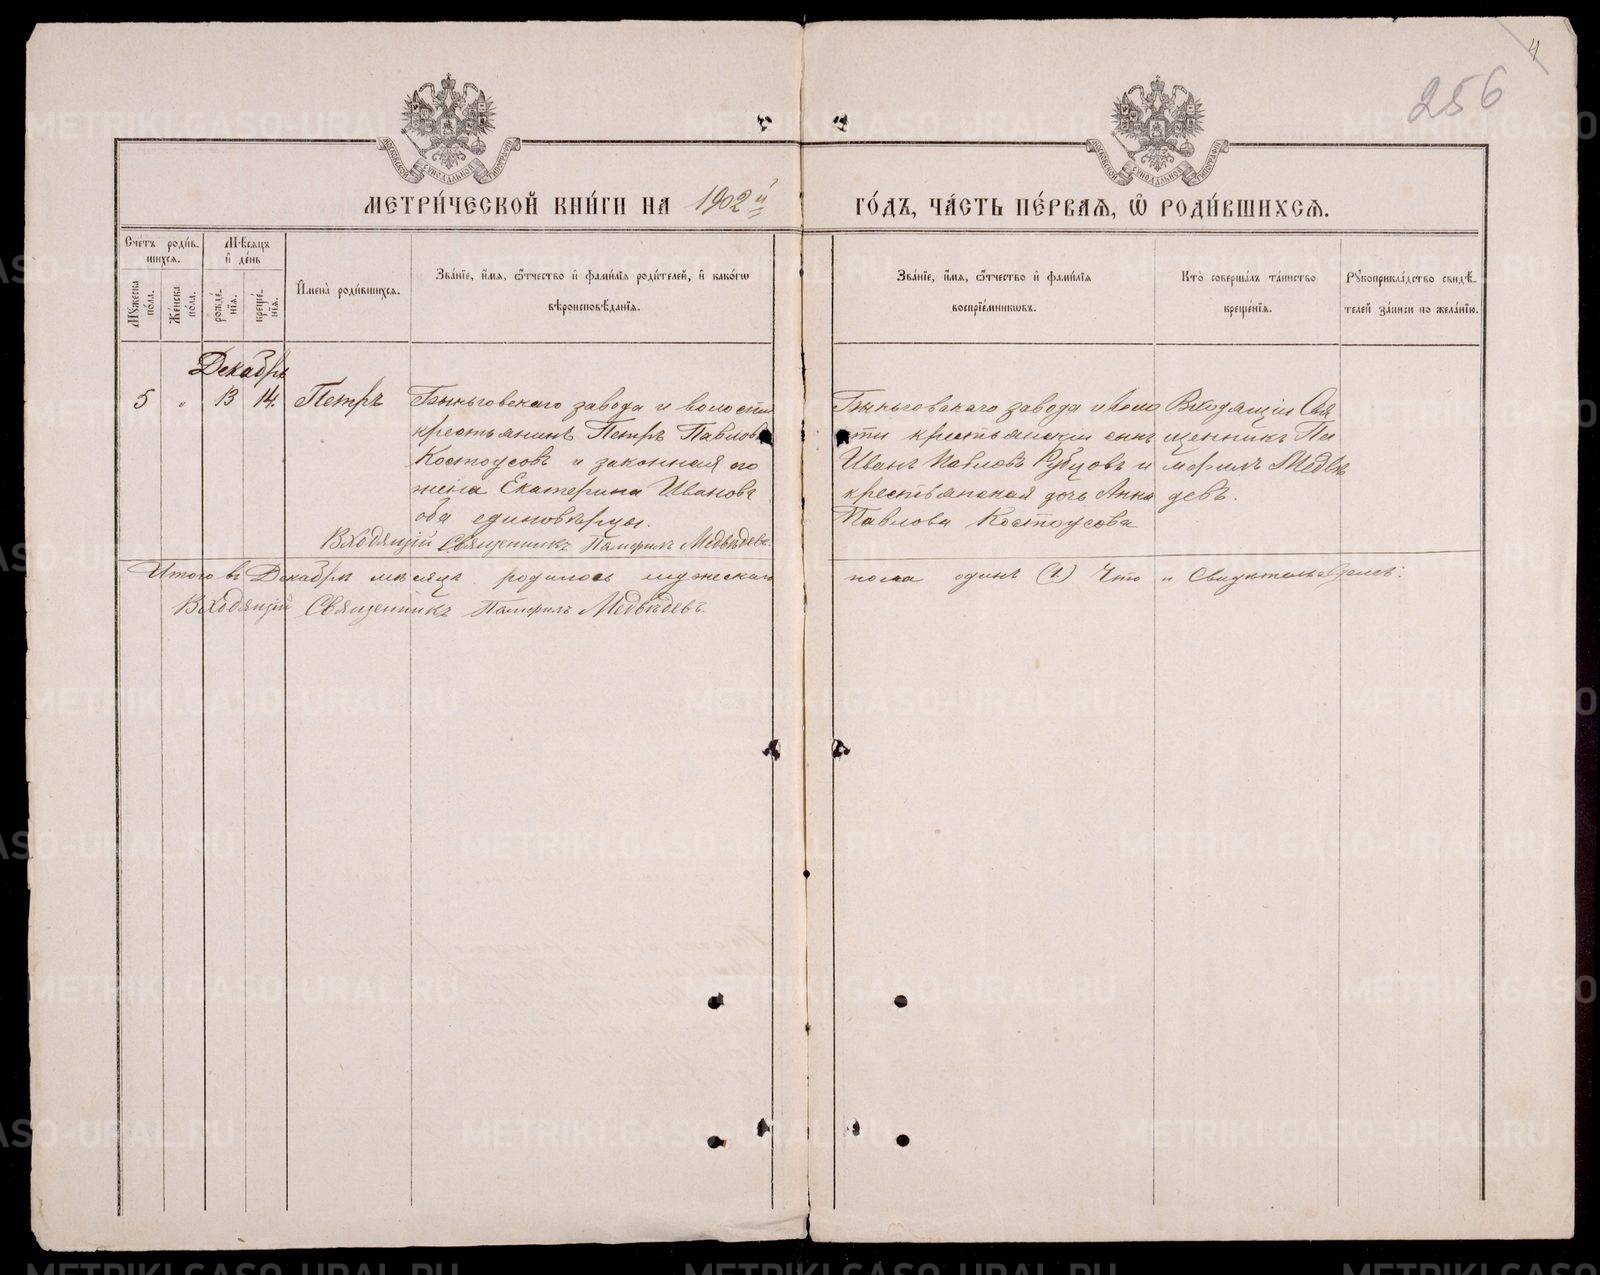 4
256
МОСКОВСКОЙ СУНОДАЛЬНОЙ ТИПОГРАФІИ
МОСКОВСКОЙ СУНОДАЛЬНОЙ ТИПОГРАФІИ
МЕТРИ́ЧЕСКОЙ КНИ́ГИ НА 1902й
ГО́ДЪ, ЧА́СТЬ ПЕ́РВАЯ, Ѡ РОДИ́ВШИХСЯ.
Сче́тъ роди́в-
шихся.
Мꙋжеска по́ла.
Же́нска по́ла.
Мѣсяцъ
и де́нь
рожде́-
нія.
креще́-
нія.
Имена̀ роди́вшихся.
Зва́ніе, и́мя, ѿтчество и фами́лія роди́телей, и како́гѡ
вѣроисповѣданія.
Зва́ніе, и́мя, ѿтчество и фами́лія
воспріе́мникѡвъ.
Кто̀ соверша́лъ та́инство
креще́нія.
Рꙋкоприкла́дство свидѣ-
телей за́писи по жела́нію.
Декабрь
5 „ 13 14. Петръ
Быньговскаго завода и волости
крестьянинъ Петръ Павловъ
Костоусовъ и законная его
жена Екатерина Иванова
оба единовѣрцы.
Входящій Священникъ Памфилъ Медвѣдевъ.
Быньговскаго завода и воло
сти крестьянскій сынъ
Иванъ Павловъ Рубцовъ и
крестьянская дочь Анна
Павлова Костоусова
Входящій Свя
щенникъ Па
мфилъ Медвѣ
девъ.
Итого въ Декабрѣ мѣсяцѣ родилось мужескаго пола одинъ (1.) Что и Свидѣтельствуемъ:
Входящій Священникъ Памфилъ Медвѣдевъ.
METRIKI.GASO-URAL.RU